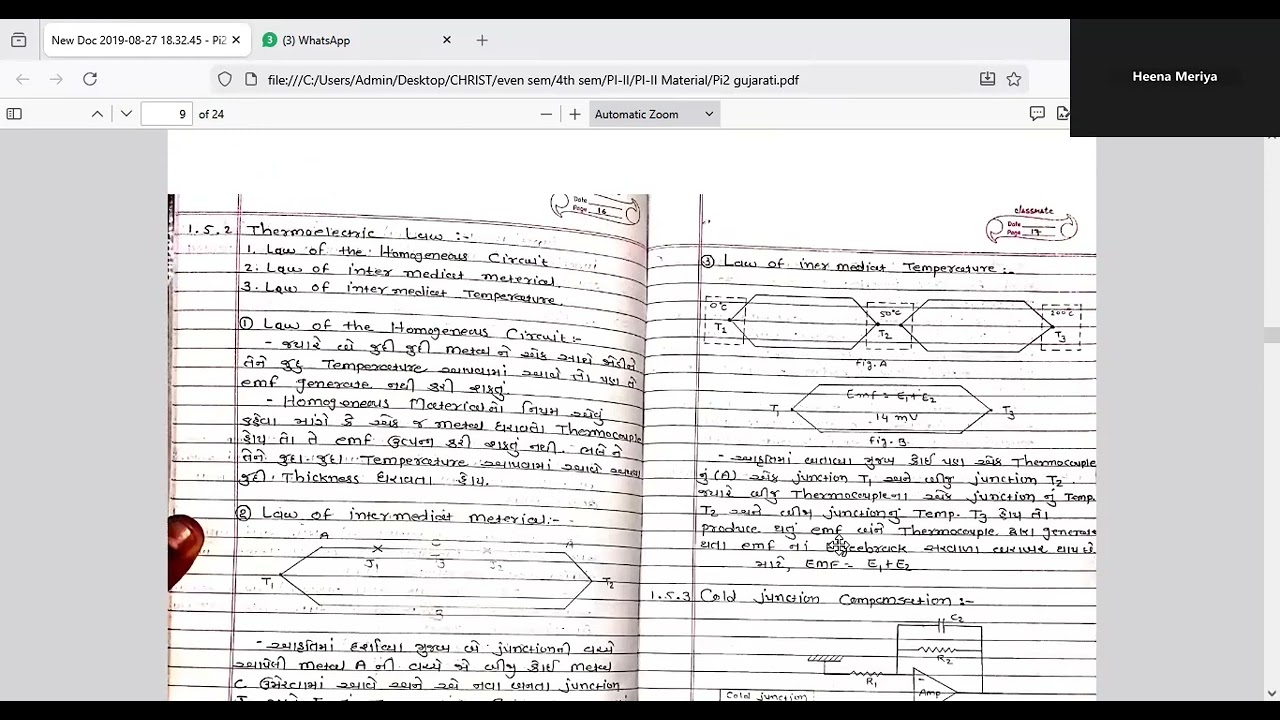 New Doc 2019-08-27 18.32.45 - Pi2
(3) WhatsApp
Heena Meriya
file:///C:/Users/Admin/Desktop/CHRIST/even sem/4th sem/PI-II/PI-II Material/Pi2 gujarati.pdf
9 of 24
Automatic Zoom
Date
Page 16
1.5.2 Thermoelectric Law :-
1. Law of the Homogeneous Circuit
2. Law of inter mediat meterial.
3. Law of intermediat Temperature.
① Law of the Homogeneous Circuit :-
- જ્યારે બે જુદી જુદી metal ને એક સાથે જોડીને
તેને જુદુ Temperature આપવામાં આવે તો પણ તે
emf generate નથી કરી શકતું.
- Homogeneous Material નો નિયમ એવું
કહેવા માંગે કે એક જ metal ધરાવતા Thermocouple
હોય તો તે emf ઉત્પન્ન કરી શકતું નથી. ભલે ને
તેને જુદા જુદા Temperature આપવામાં આવે અથવા
જુદી Thickness ધરાવતા હોય.
② Law of intermediat meterial :-
A C A
J1 J3 J2
T1 T2
B
- આકૃતિમાં દર્શાવ્યા મુજબ બે junction ની વચ્ચે
આપેલી metal A ની વચ્ચે જો બીજી કોઈ metal
C ઉમેરવામાં આવે અને એ નવા બનતા junction
classmate
Date
Page 17
③ Law of iner mediat Temperature :-
0°C 50°C 200°C
T1 T2 T3
Fig. A
Emf = E1+E2
T1 T3
14 mV
Fig. B
- આકૃતિમાં બતાવ્યા મુજબ કોઈ પણ એક Thermocouple
નું (A) એક junction T1 અને બીજુ junction T2
જ્યારે બીજુ Thermocouple ના એક junction નું Temp.
T2 અને બીજા junction નું Temp. T3 હોય તો
produce થતું emf બંને Thermocouple દ્વારા generate
થતા emf નાં સરવાળા બરાબર થાય છે
માટે, EMF = E1+E2
1.5.3 Cold junction Compensation :-
C2
R2
R1
Amp
Cold junction